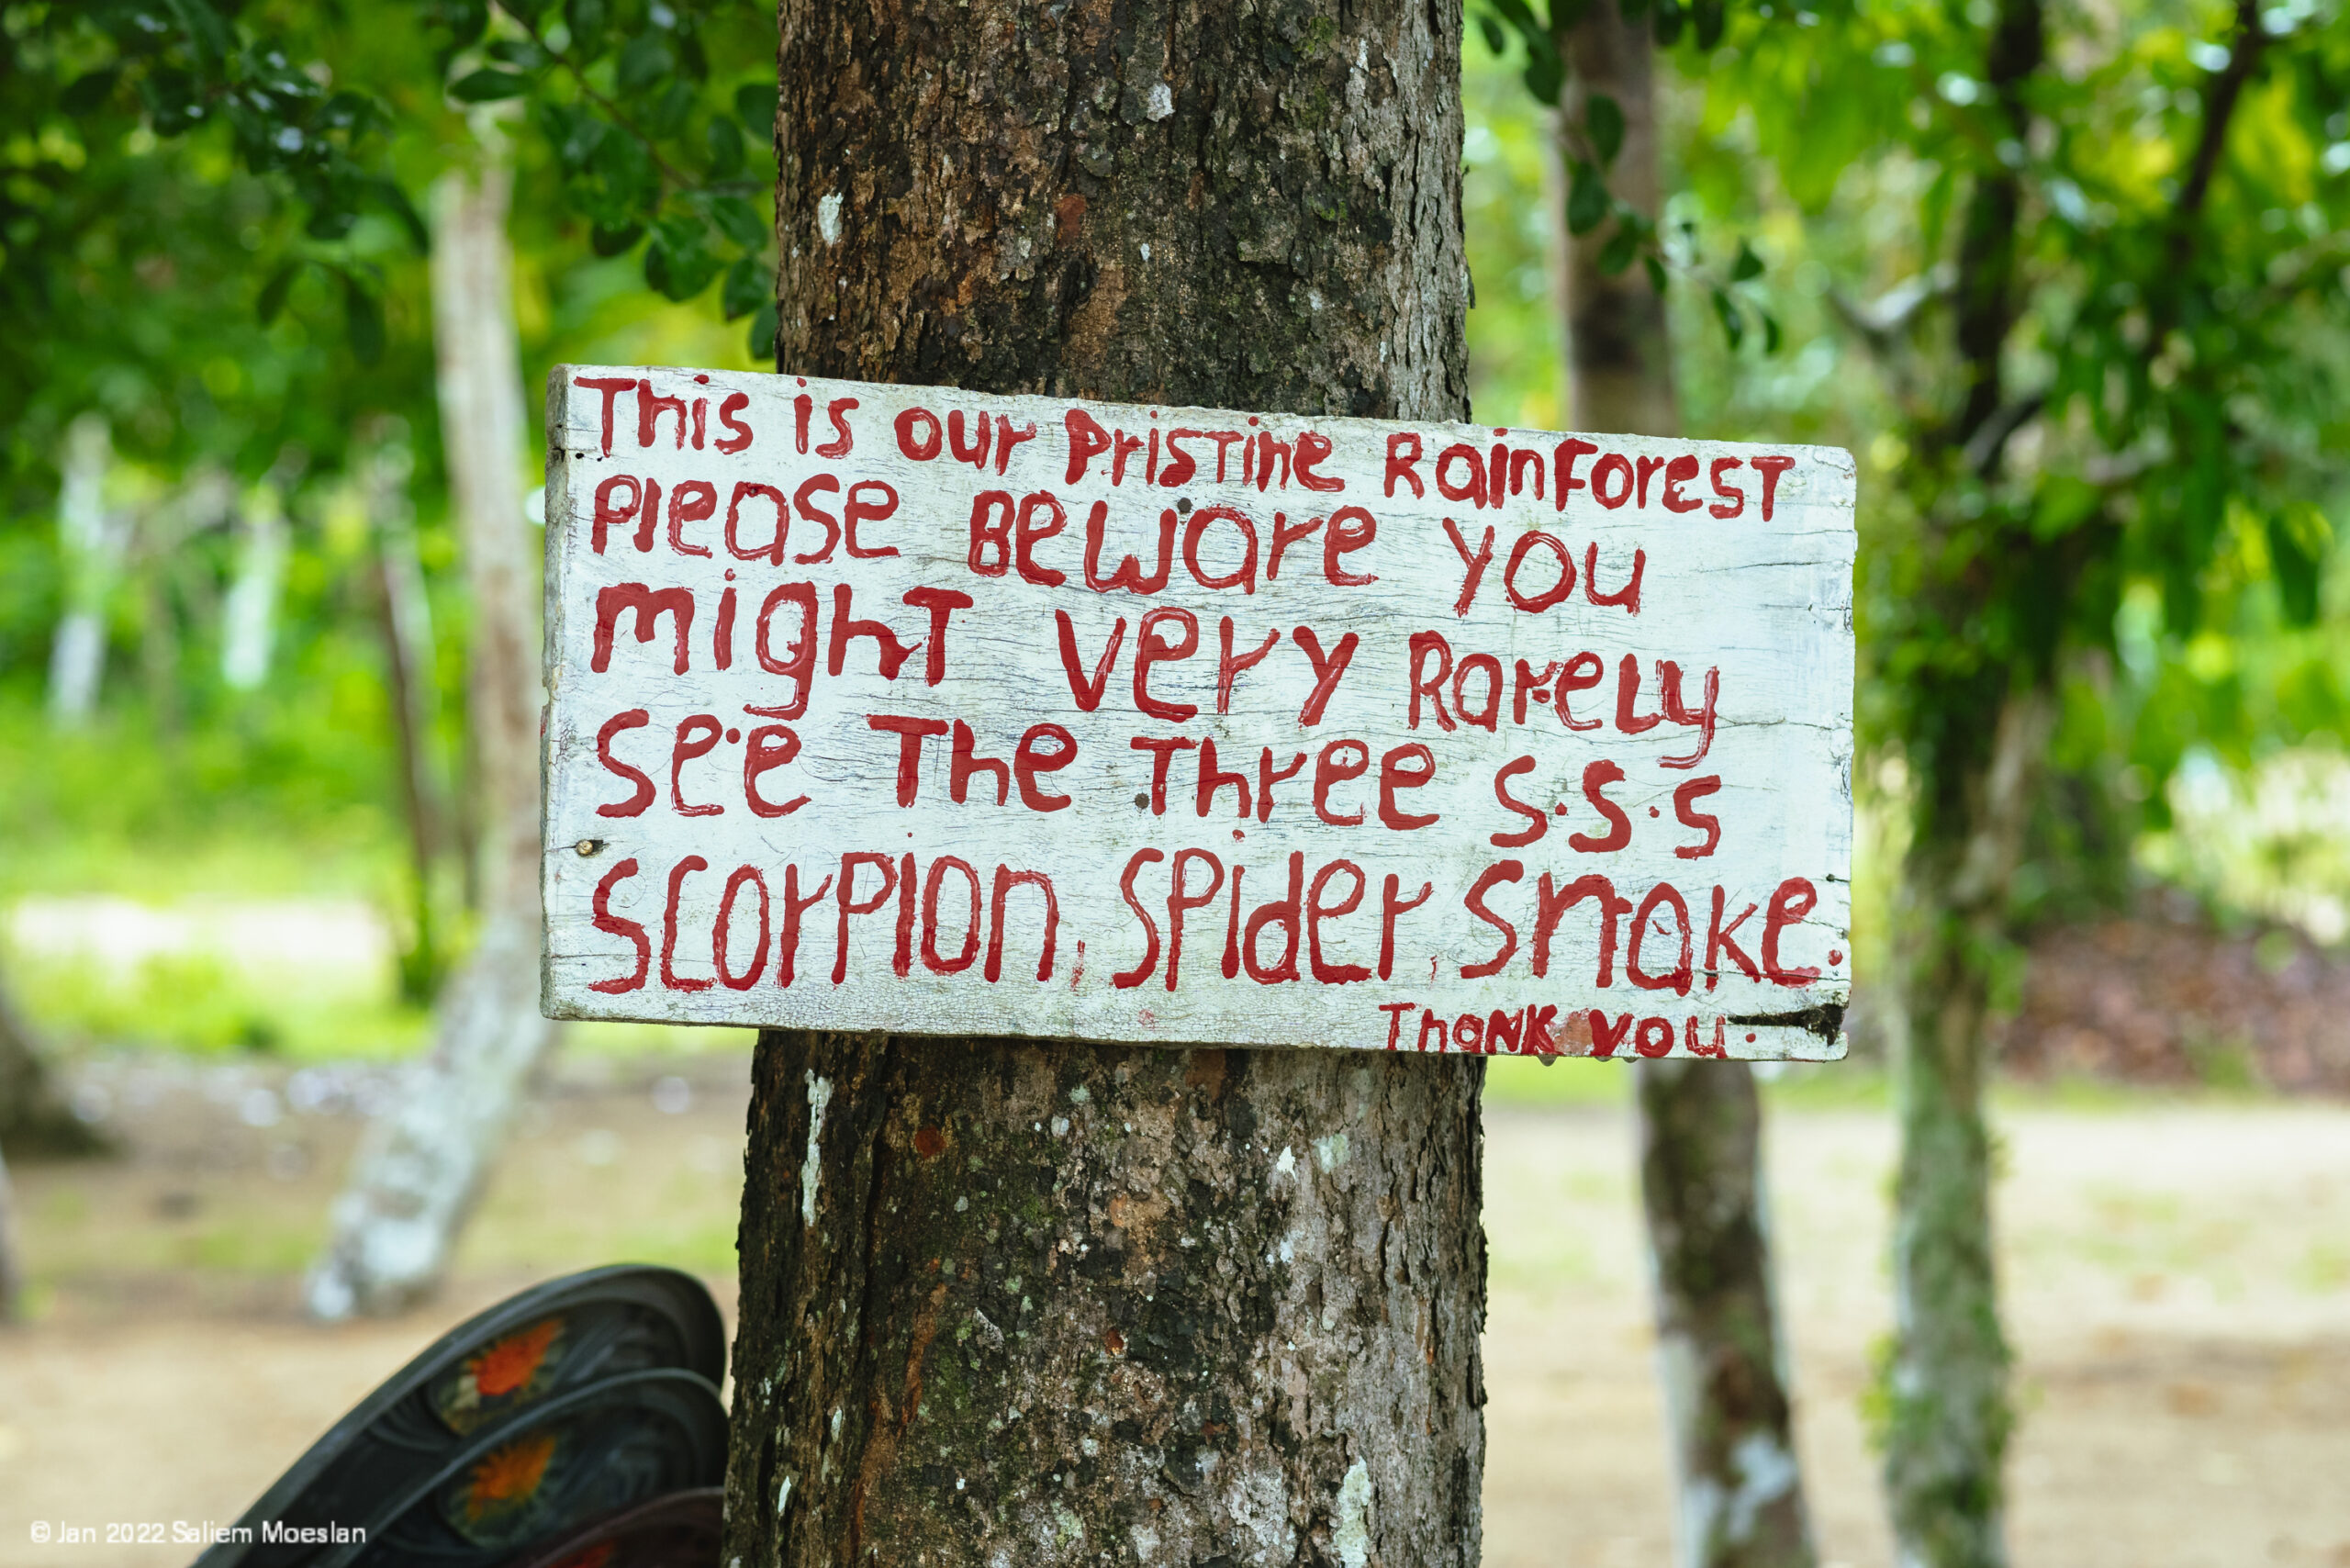 This is our Pristine RainForest
Please Beware you
might very Rarely
see The Three S.S.S
Scorpion, Spider, Snake.
Thank you.
© Jan 2022 Saliem Moeslan